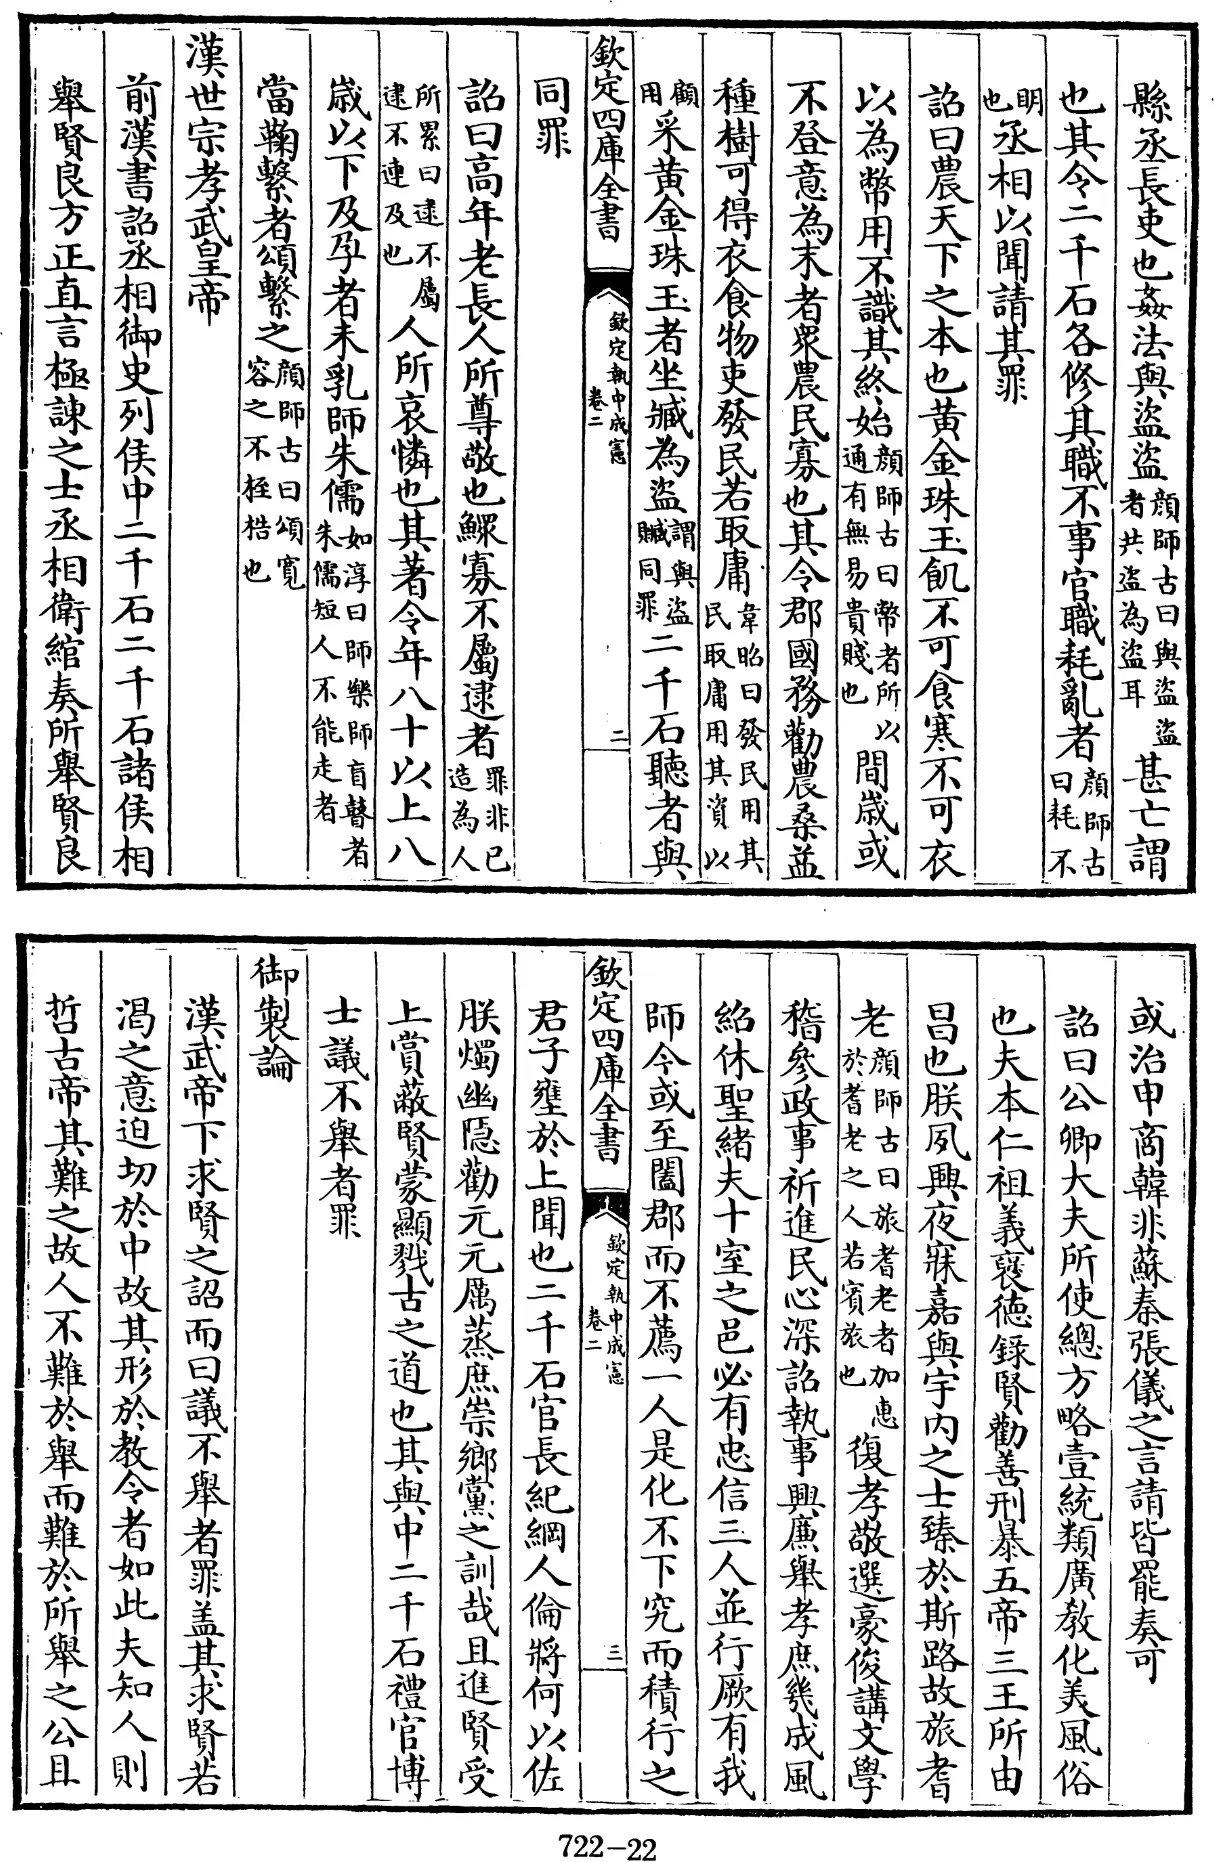 縣丞長吏也姦法與盜盜顔師古曰與盜盜者共盜為盜耳甚亡謂
也其令二千石各修其職不事官職耗亂者顔師古曰耗不
明也丞相以聞請其罪
詔曰農天下之本也黄金珠玉飢不可食寒不可衣
以為幣用不識其終始顔師古曰幣者所以通有無易貴賤也間嵗或
不登意為末者衆農民寡也其令郡國務勸農桑益
種樹可得衣食物吏發民若取庸韋昭曰發民用其民取庸用其資以
顧用采黄金珠玉者坐臧為盜謂與盜贓同罪二千石聽者與
欽定四庫全書
欽定執中成憲
卷二
二
同罪
詔曰高年老長人所尊敬也鰥寡不屬逮者罪非已造為人
所累曰逮不屬逮不連及也人所哀憐也其著令年八十以上八
嵗以下及孕者未乳師朱儒如淳曰師樂師盲瞽者朱儒短人不能走者
當鞠繫者頌繫之顔師古曰頌寛容之不桎梏也
漢世宗孝武皇帝
前漢書詔丞相御史列侯中二千石二千石諸侯相
舉賢良方正直言極諫之士丞相衛綰奏所舉賢良
或治申商韓非蘇秦張儀之言請皆罷奏可
詔曰公卿大夫所使總方略壹統類廣教化美風俗
也夫本仁祖義褒德錄賢勸善刑暴五帝三王所由
昌也朕夙興夜寐嘉與宇内之士臻於斯路故旅耆
老顔師古曰旅耆老者加惠於耆老之人若賓旅也復孝敬選豪俊講文學
稽參政事祈進民心深詔執事興廉舉孝庶幾成風
紹休聖緒夫十室之邑必有忠信三人並行厥有我
師今或至闔郡而不薦一人是化不下究而積行之
欽定四庫全書
欽定執中成憲
卷二
三
君子壅於上聞也二千石官長紀綱人倫將何以佐
朕燭幽隠勸元元厲蒸庶崇鄉黨之訓哉且進賢受
上賞蔽賢蒙顯戮古之道也其與中二千石禮官博
士議不舉者罪
御製論
漢武帝下求賢之詔而曰議不舉者罪盖其求賢若
渴之意迫切於中故其形於教令者如此夫知人則
哲古帝其難之故人不難於舉而難於所舉之公且
722-22